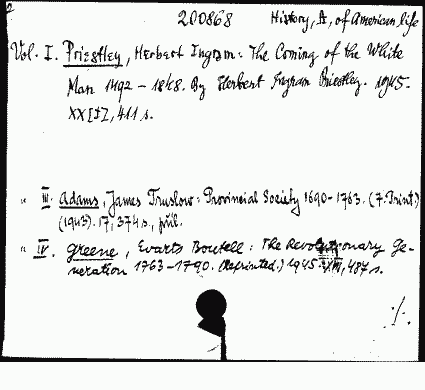 2
200868 History, A, of American life
Vol. I. Priestley, Herbert Ingram: The Coming of the White
Man 1492-1848. By Herbert Ingram Priestley. 1945.
XX[I], 411 s.
" III. Adams, James Truslow: Provincial Society 1690-1763. (7. Print.)
(1943). 17, 374 s., příl.
" IV. Greene, Evarts Boutell: The Revolutionary Ge-
neration 1763-1790. (Reprinted.) 1945. XVII, 487 s.
./.